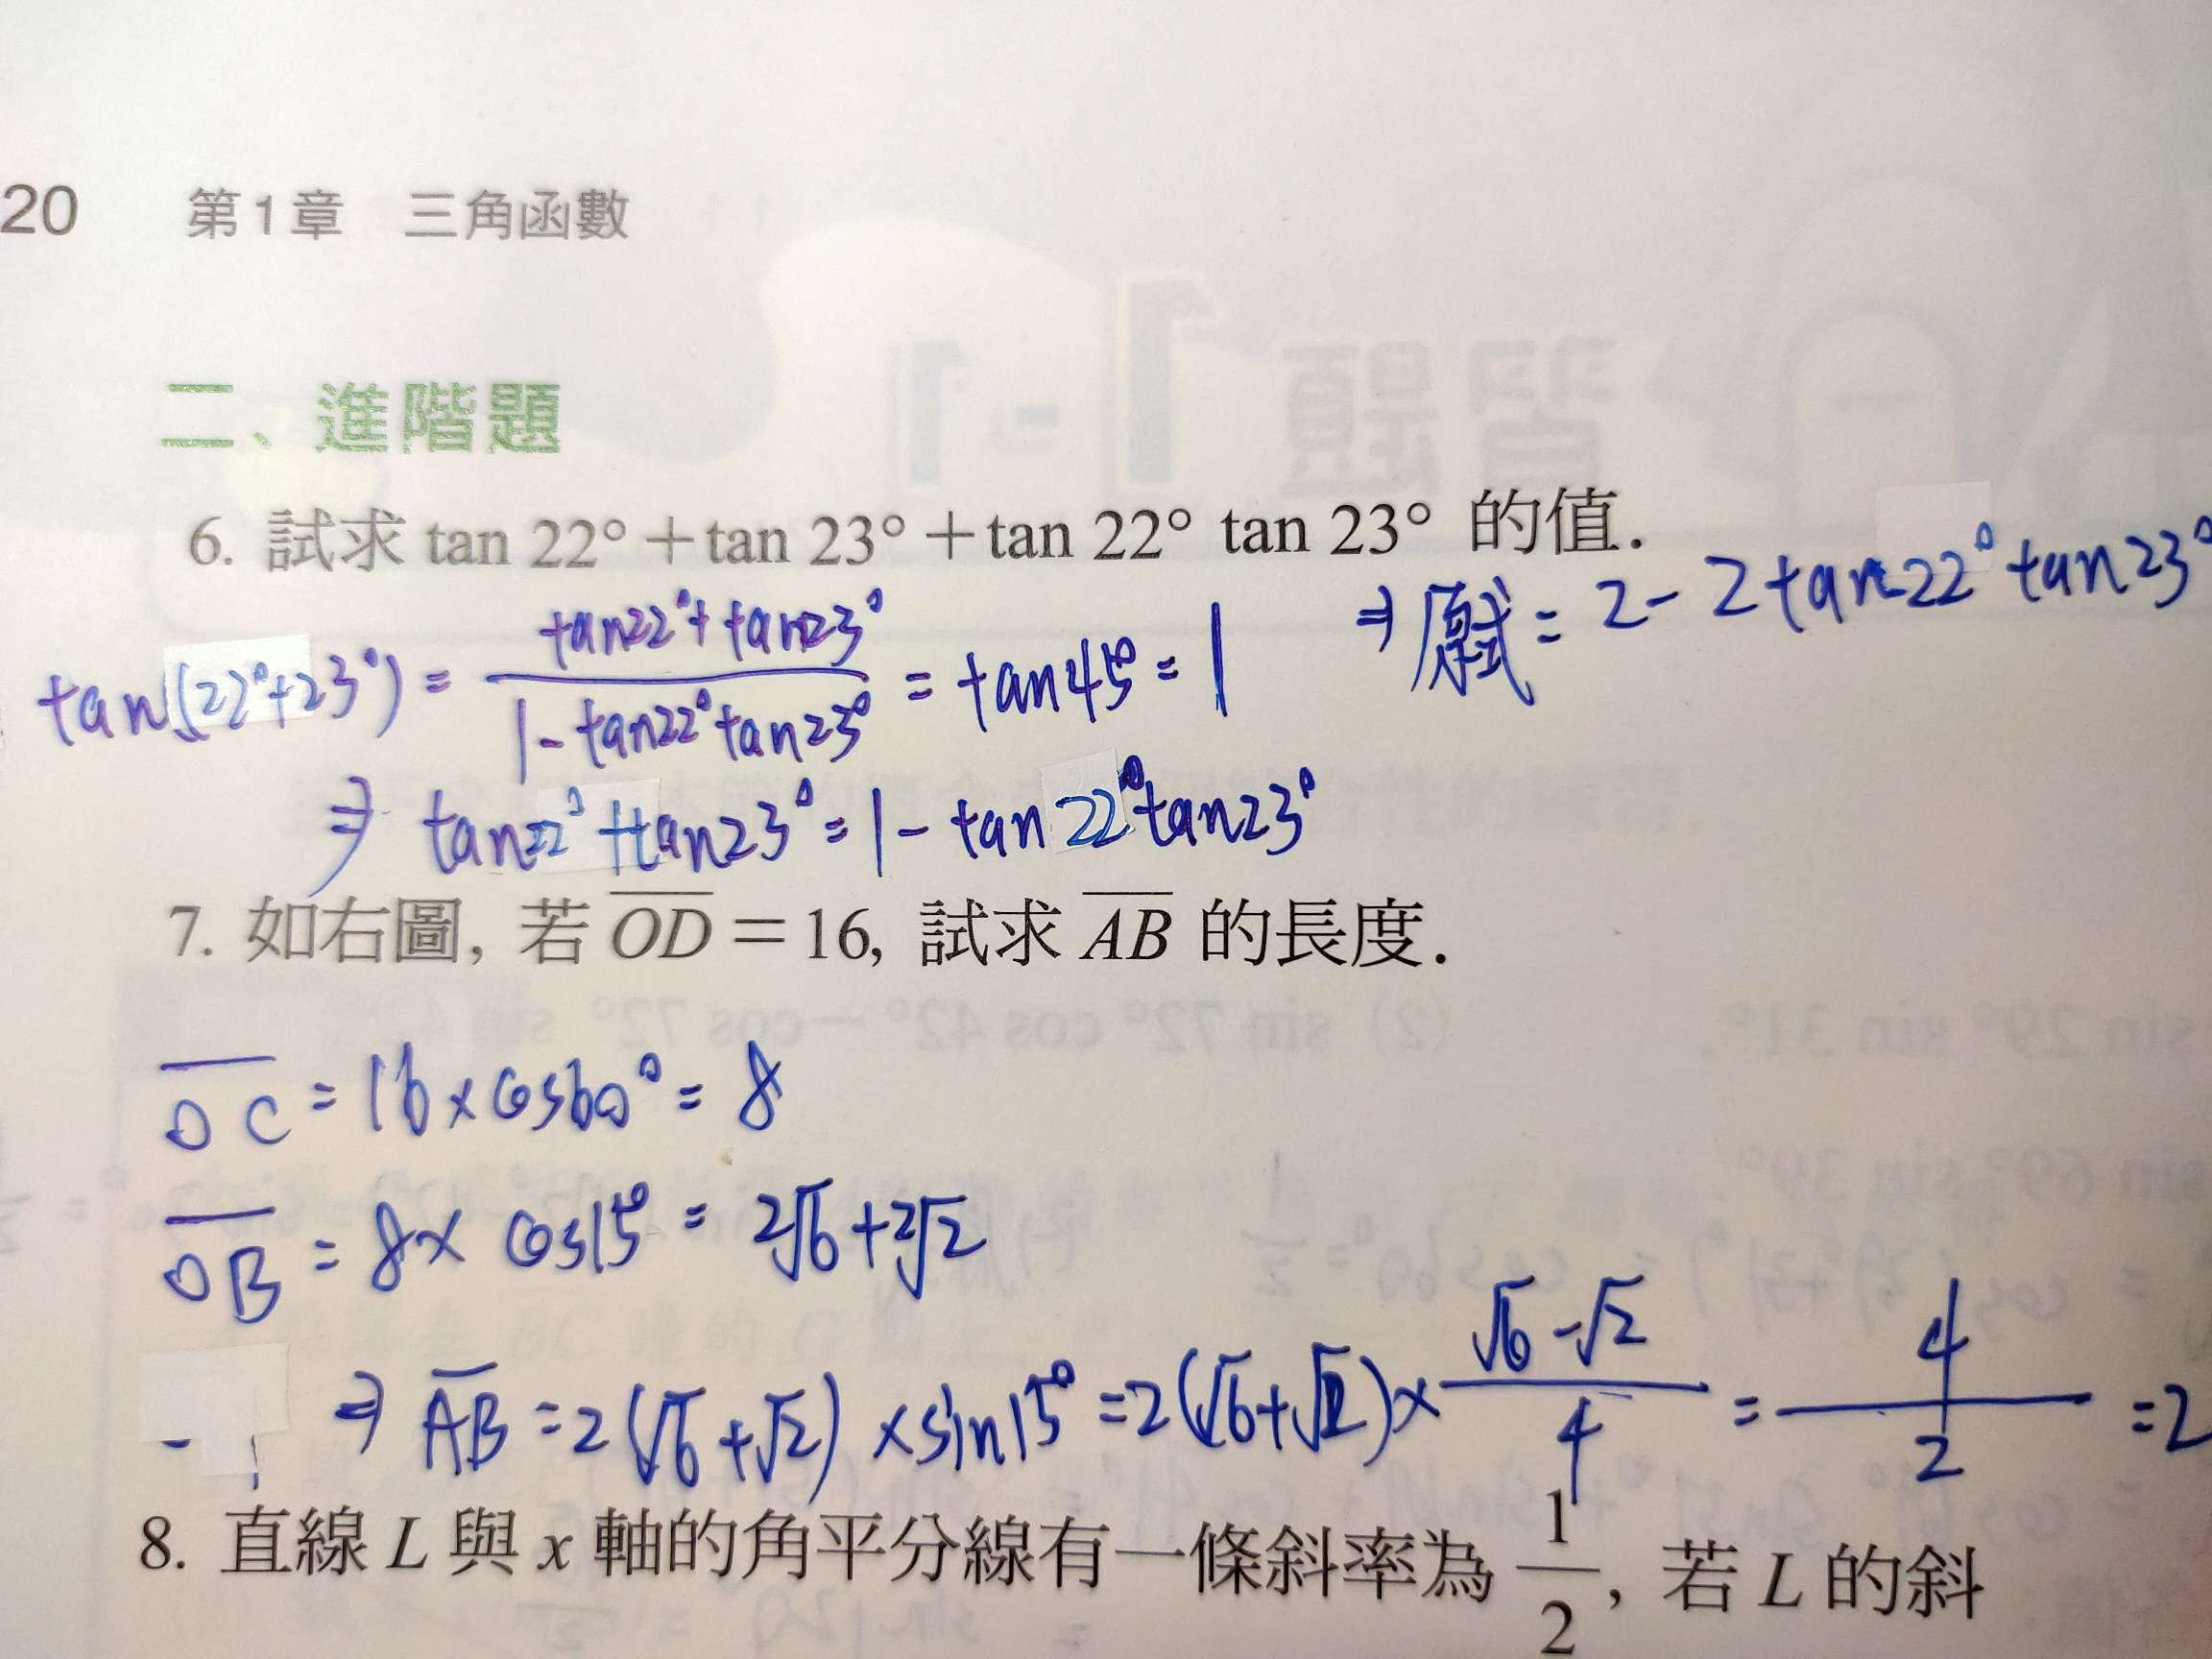 20 第1章 三角函數
二、進階題
6. 試求 tan 22°＋tan 23°＋tan 22° tan 23° 的值.
⇒ 原式 = 2 - 2 tan 22° tan 23°
tan(22°+23°) = (tan22°+tan23°)/(1-tan22°tan23°) = tan45° = 1
⇒ tan22°+tan23° = 1 - tan22°tan23°
7. 如右圖, 若 OD＝16, 試求 AB 的長度.
OC = 16 × cos60° = 8
OB = 8 × cos15° = 2√6+2√2
⇒ AB = 2(√6+√2) × sin15° = 2(√6+√2) × (√6-√2)/4 = 4/2 = 2
8. 直線 L 與 x 軸的角平分線有一條斜率為 1/2, 若 L 的斜